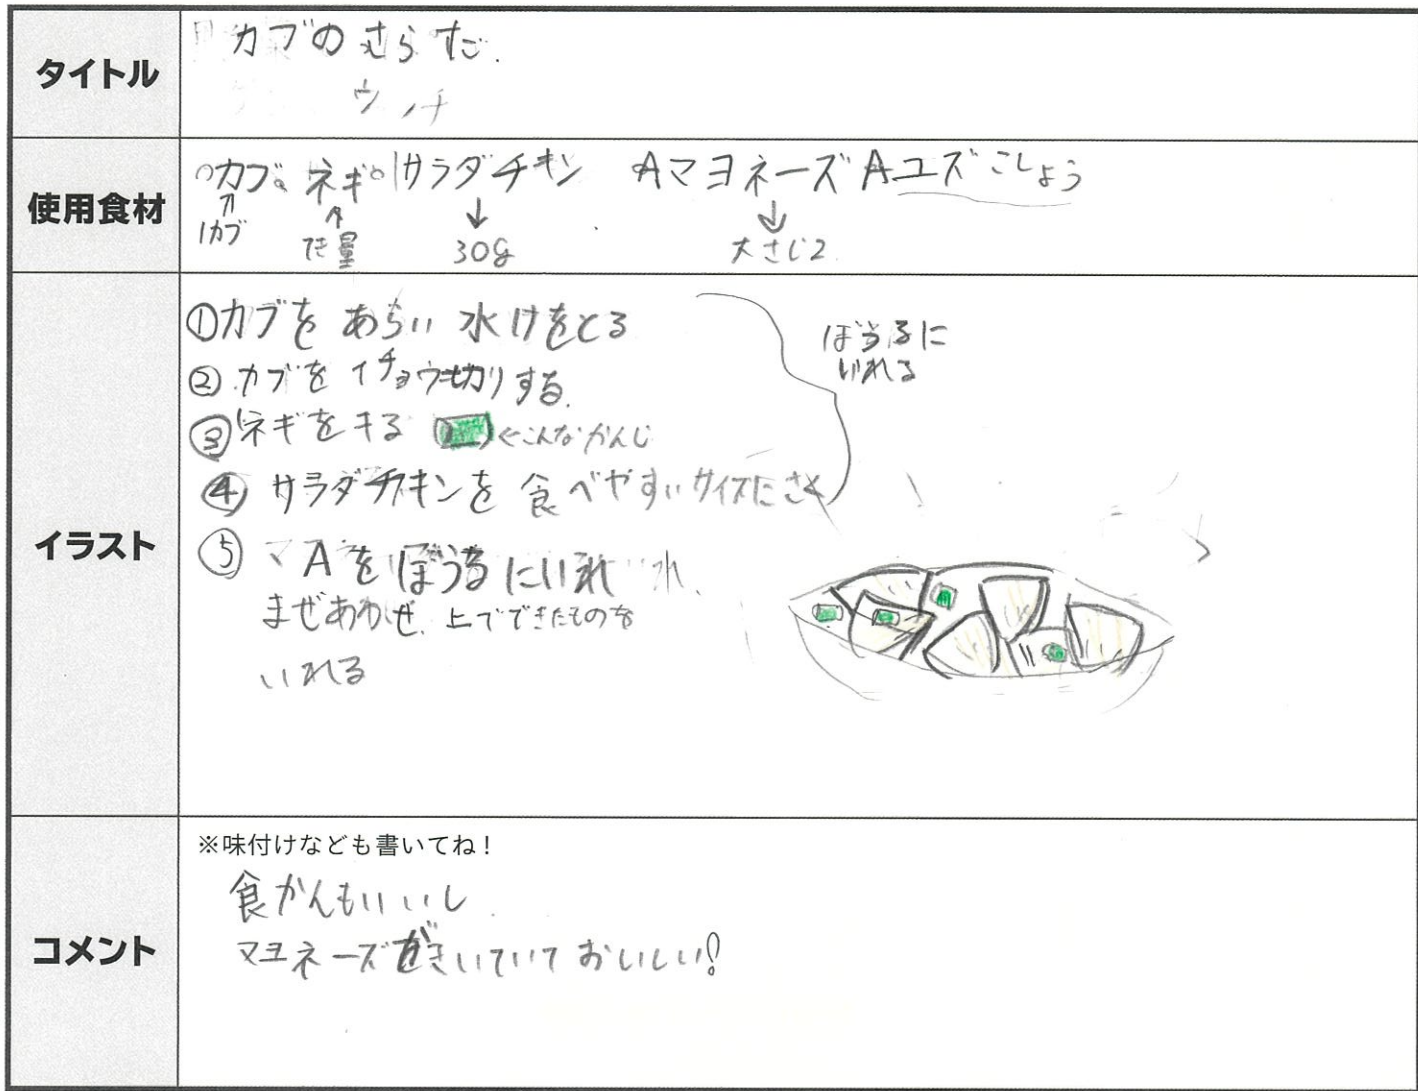 タイトル
カブのさらだ.
使用食材
○カブ。ネギ。サラダチキン AマヨネーズAユズこしょう
1カブ
てき量
30g
大さじ2
イラスト
①カブを あらい 水けをとる
②カブを イチョウ切りする.
③ネギをキる ←こんなかんじ
④ サラダチキンを 食べやすいサイズにさく
ぼうるに
いれる
⑤ Aを ぼうるにいれ
まぜあわせ、上でできたものを
いれる
コメント
※味付けなども書いてね！
食かんもいいし
マヨネーズがきいていて おいしい!